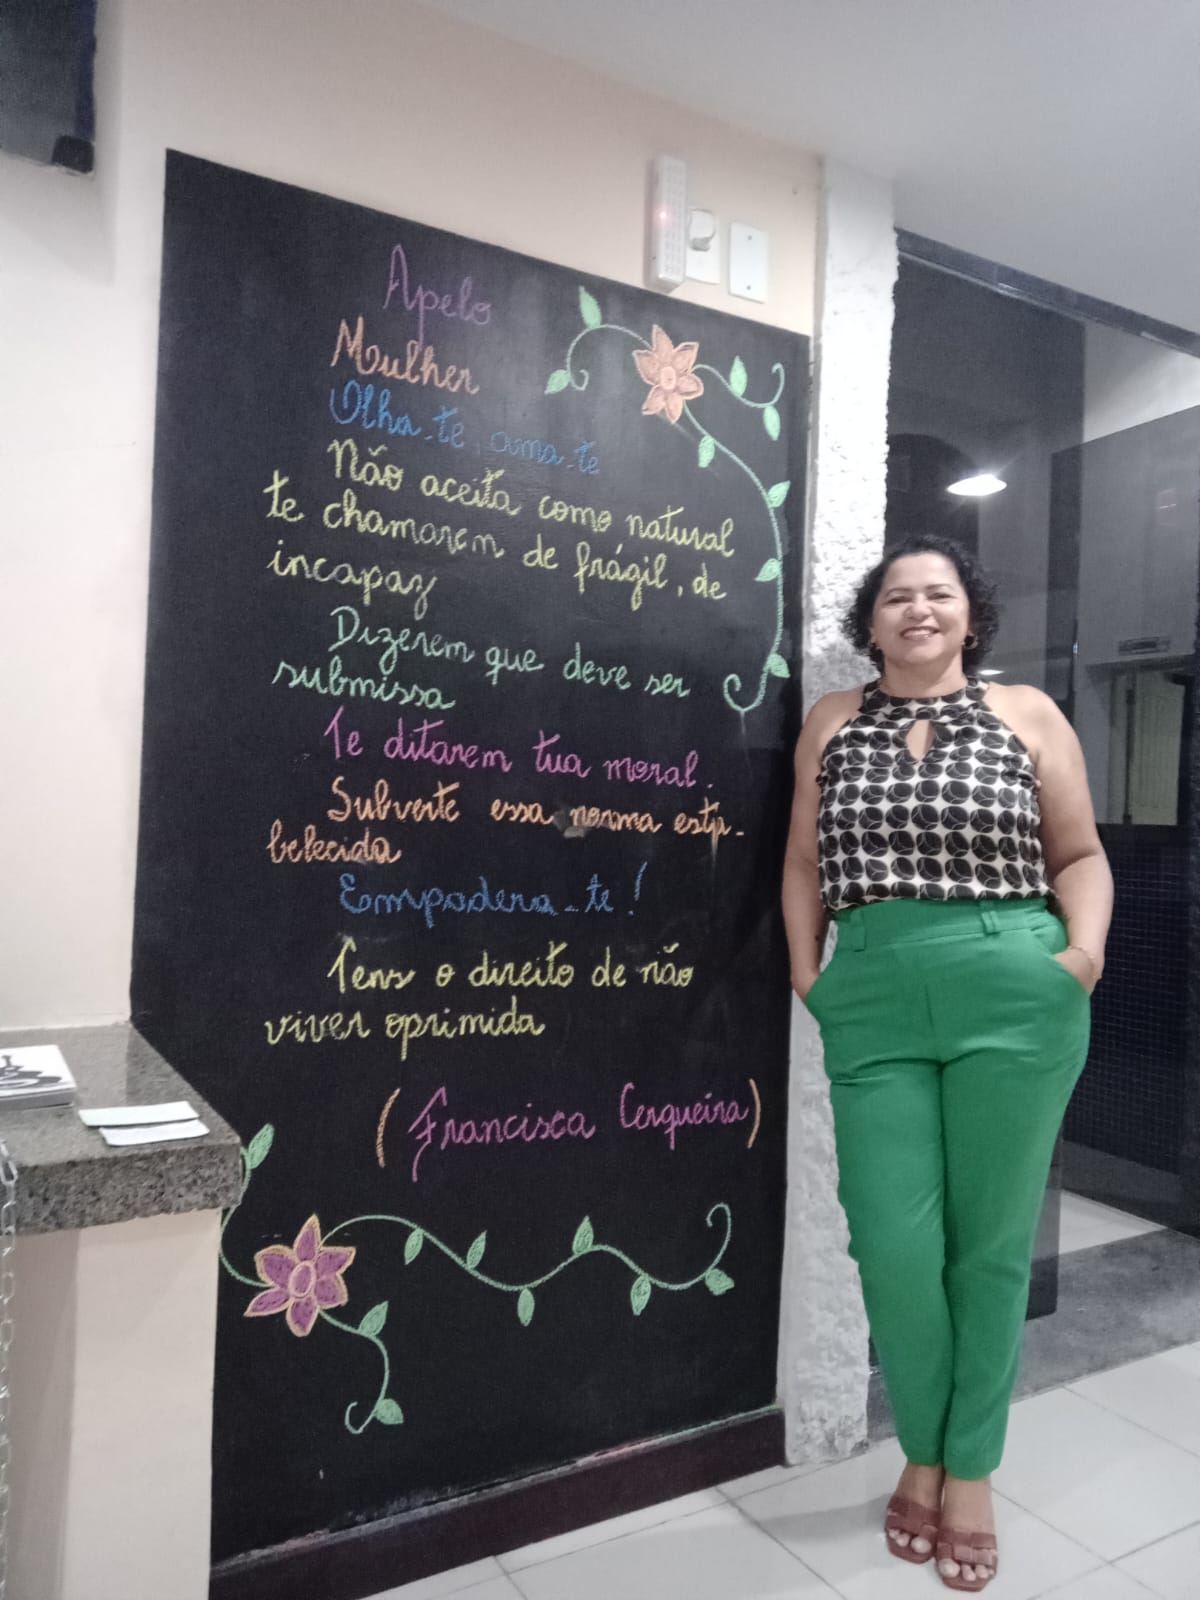 Apelo
Mulher
Olha-te, ama-te
Não aceita como natural
te chamarem de frágil, de
incapaz
Dizerem que deve ser
submissa
Te ditarem tua moral.
Subverte essa norma esta-
belecida
Empodera-te!
Tens o direito de não
viver oprimida
(Francisca Cerqueira)